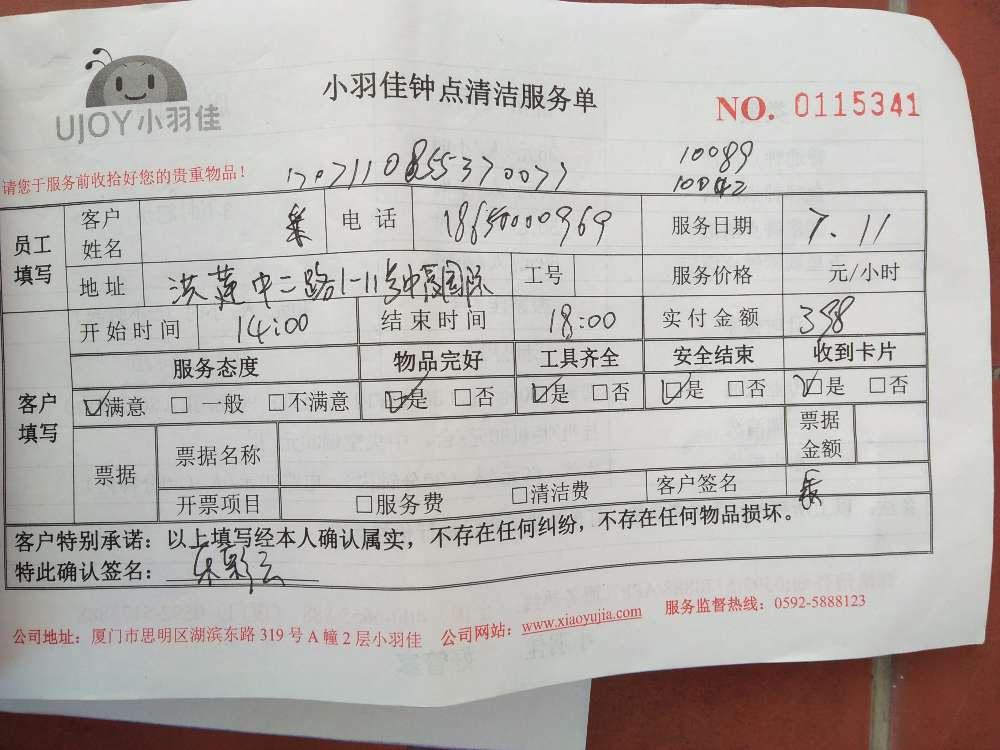 UJOY小羽佳
小羽佳钟点清洁服务单
NO. 0115341
请您于服务前收拾好您的贵重物品！
10089
10042
员工填写 客户姓名 电话 18650000969 服务日期 7.11
地址 工号 服务价格 元/小时
开始时间 14:00 结束时间 18:00 实付金额 398
服务态度 物品完好 工具齐全 安全结束 收到卡片
客户填写 ☑满意 □一般 □不满意 ☑是 □否 ☑是 □否 ☑是 □否 ☑是 □否
票据 票据名称 票据金额
开票项目 □服务费 □清洁费 客户签名
客户特别承诺：以上填写经本人确认属实，不存在任何纠纷，不存在任何物品损坏。
特此确认签名：
公司地址：厦门市思明区湖滨东路319号A幢2层小羽佳 公司网站：www.xiaoyujia.com 服务监督热线：0592-5888123